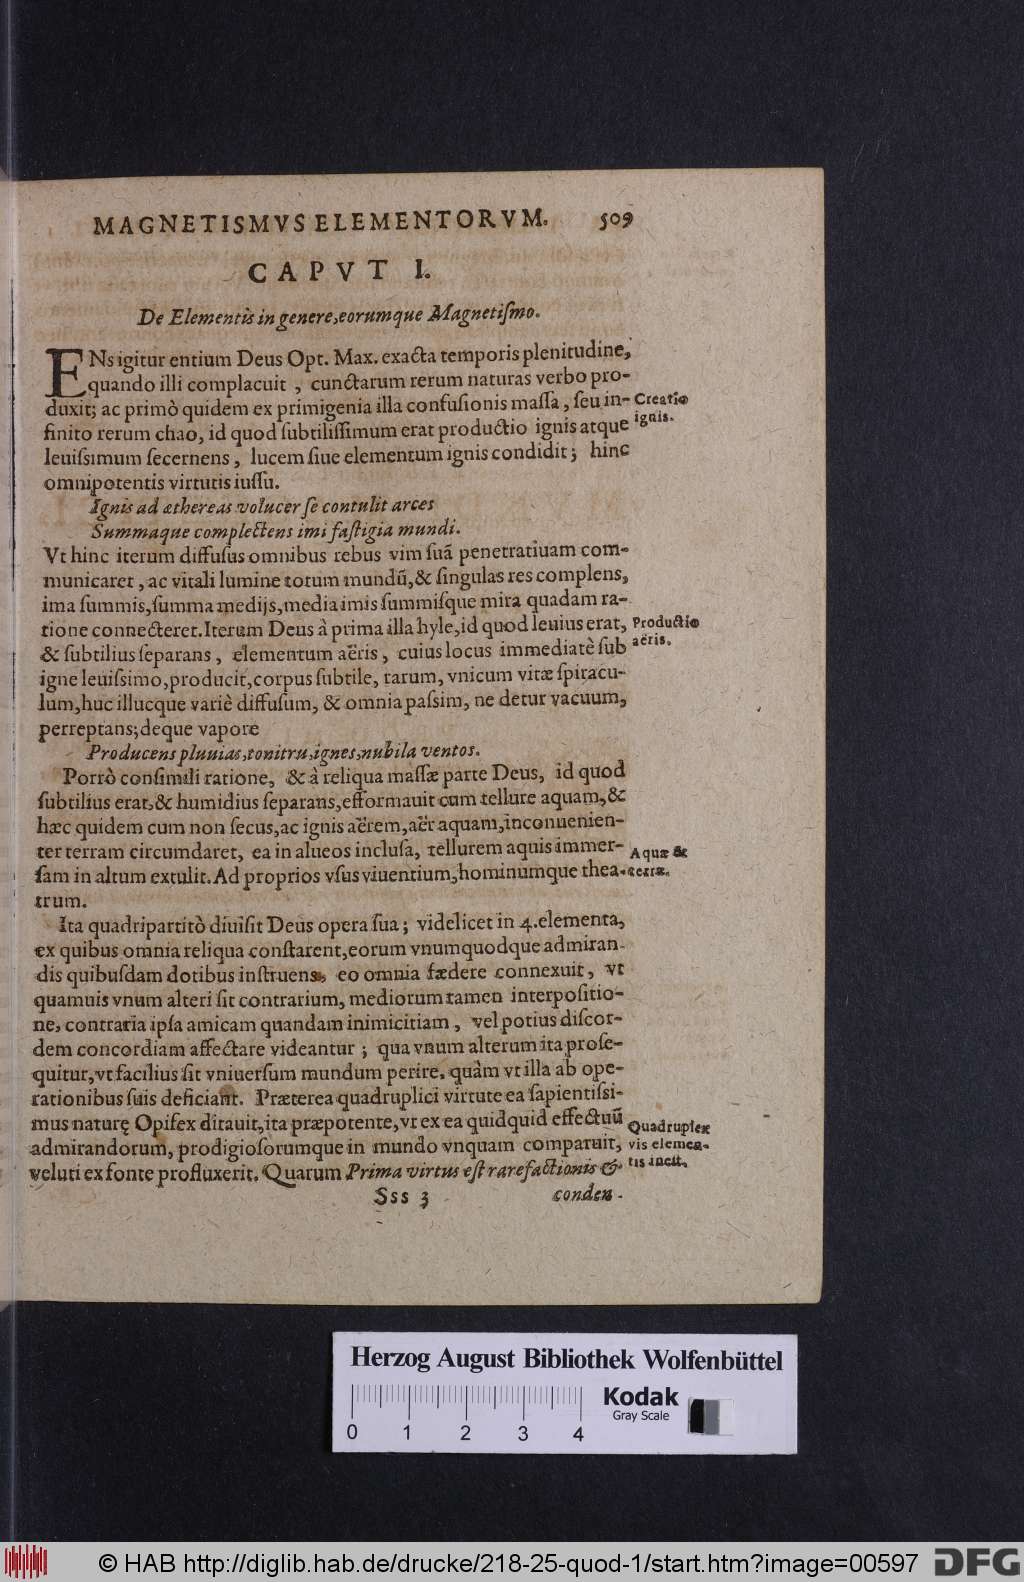 MAGNETISMVS ELEMENTORVM. 509
CAPVT I.
De Elementis in genere, eorumque Magnetiſmo.
ENs igitur entium Deus Opt. Max. exacta temporis plenitudine,
quando illi complacuit, cunctarum rerum naturas verbo pro-
duxit; ac primò quidem ex primigenia illa confuſionis maſſa, ſeu in-
finito rerum chao, id quod ſubtiliſſimum erat productio ignis atque
leuiſsimum ſecernens, lucem ſiue elementum ignis condidit; hinc
omnipotentis virtutis iuſſu.
Creatio
ignis.
Ignis ad æthereas volucer ſe contulit arces
Summaque complectens imi faſtigia mundi.
Vt hinc iterum diffuſus omnibus rebus vim ſuã penetratiuam com-
municaret, ac vitali lumine totum mundũ, & ſingulas res complens,
ima ſummis, ſumma medijs, media imis ſummiſque mira quadam ra-
tione connecteret. Iterum Deus à prima illa hyle, id quod leuius erat,
& ſubtilius ſeparans, elementum aëris, cuius locus immediatè ſub
igne leuiſsimo, producit, corpus ſubtile, rarum, vnicum vitæ ſpiracu-
lum, huc illucque variè diffuſum, & omnia paſsim, ne detur vacuum,
perreptans; deque vapore
Productio
aëris.
Producens pluuias, tonitru, ignes, nubila ventos.
Porrò conſimili ratione, & à reliqua maſſæ parte Deus, id quod
ſubtilius erat, & humidius ſeparans, efformauit cum tellure aquam, &
hæc quidem cum non ſecus, ac ignis aërem, aër aquam, inconuenien-
ter terram circumdaret, ea in alueos incluſa, tellurem aquis immer-
ſam in altum extulit. Ad proprios vſus viuentium, hominumque thea-
trum.
Aquæ &
terræ.
Ita quadripartitò diuiſit Deus opera ſua; videlicet in 4. elementa,
ex quibus omnia reliqua conſtarent, eorum vnumquodque admiran-
dis quibuſdam dotibus inſtruens, eo omnia fædere connexuit, vt
quamuis vnum alteri ſit contrarium, mediorum tamen interpoſitio-
ne, contraria ipſa amicam quandam inimicitiam, vel potius diſcor-
dem concordiam affectare videantur; qua vnum alterum ita proſe-
quitur, vt facilius ſit vniuerſum mundum perire, quàm vt illa ab ope-
rationibus ſuis deficiant. Præterea quadruplici virtute ea ſapientiſsi-
mus naturę Opifex ditauit, ita præpotente, vt ex ea quidquid effectuũ
admirandorum, prodigioſorumque in mundo vnquam comparuit,
veluti ex fonte profluxerit. Quarum Prima virtus eſt rarefactionis &
Quadruplex
vis elemen-
tis ineſt.
Sss 3 conden-
Herzog August Bibliothek Wolfenbüttel
Kodak
Gray Scale
0 1 2 3 4
© HAB http://diglib.hab.de/drucke/218-25-quod-1/start.htm?image=00597 DFG